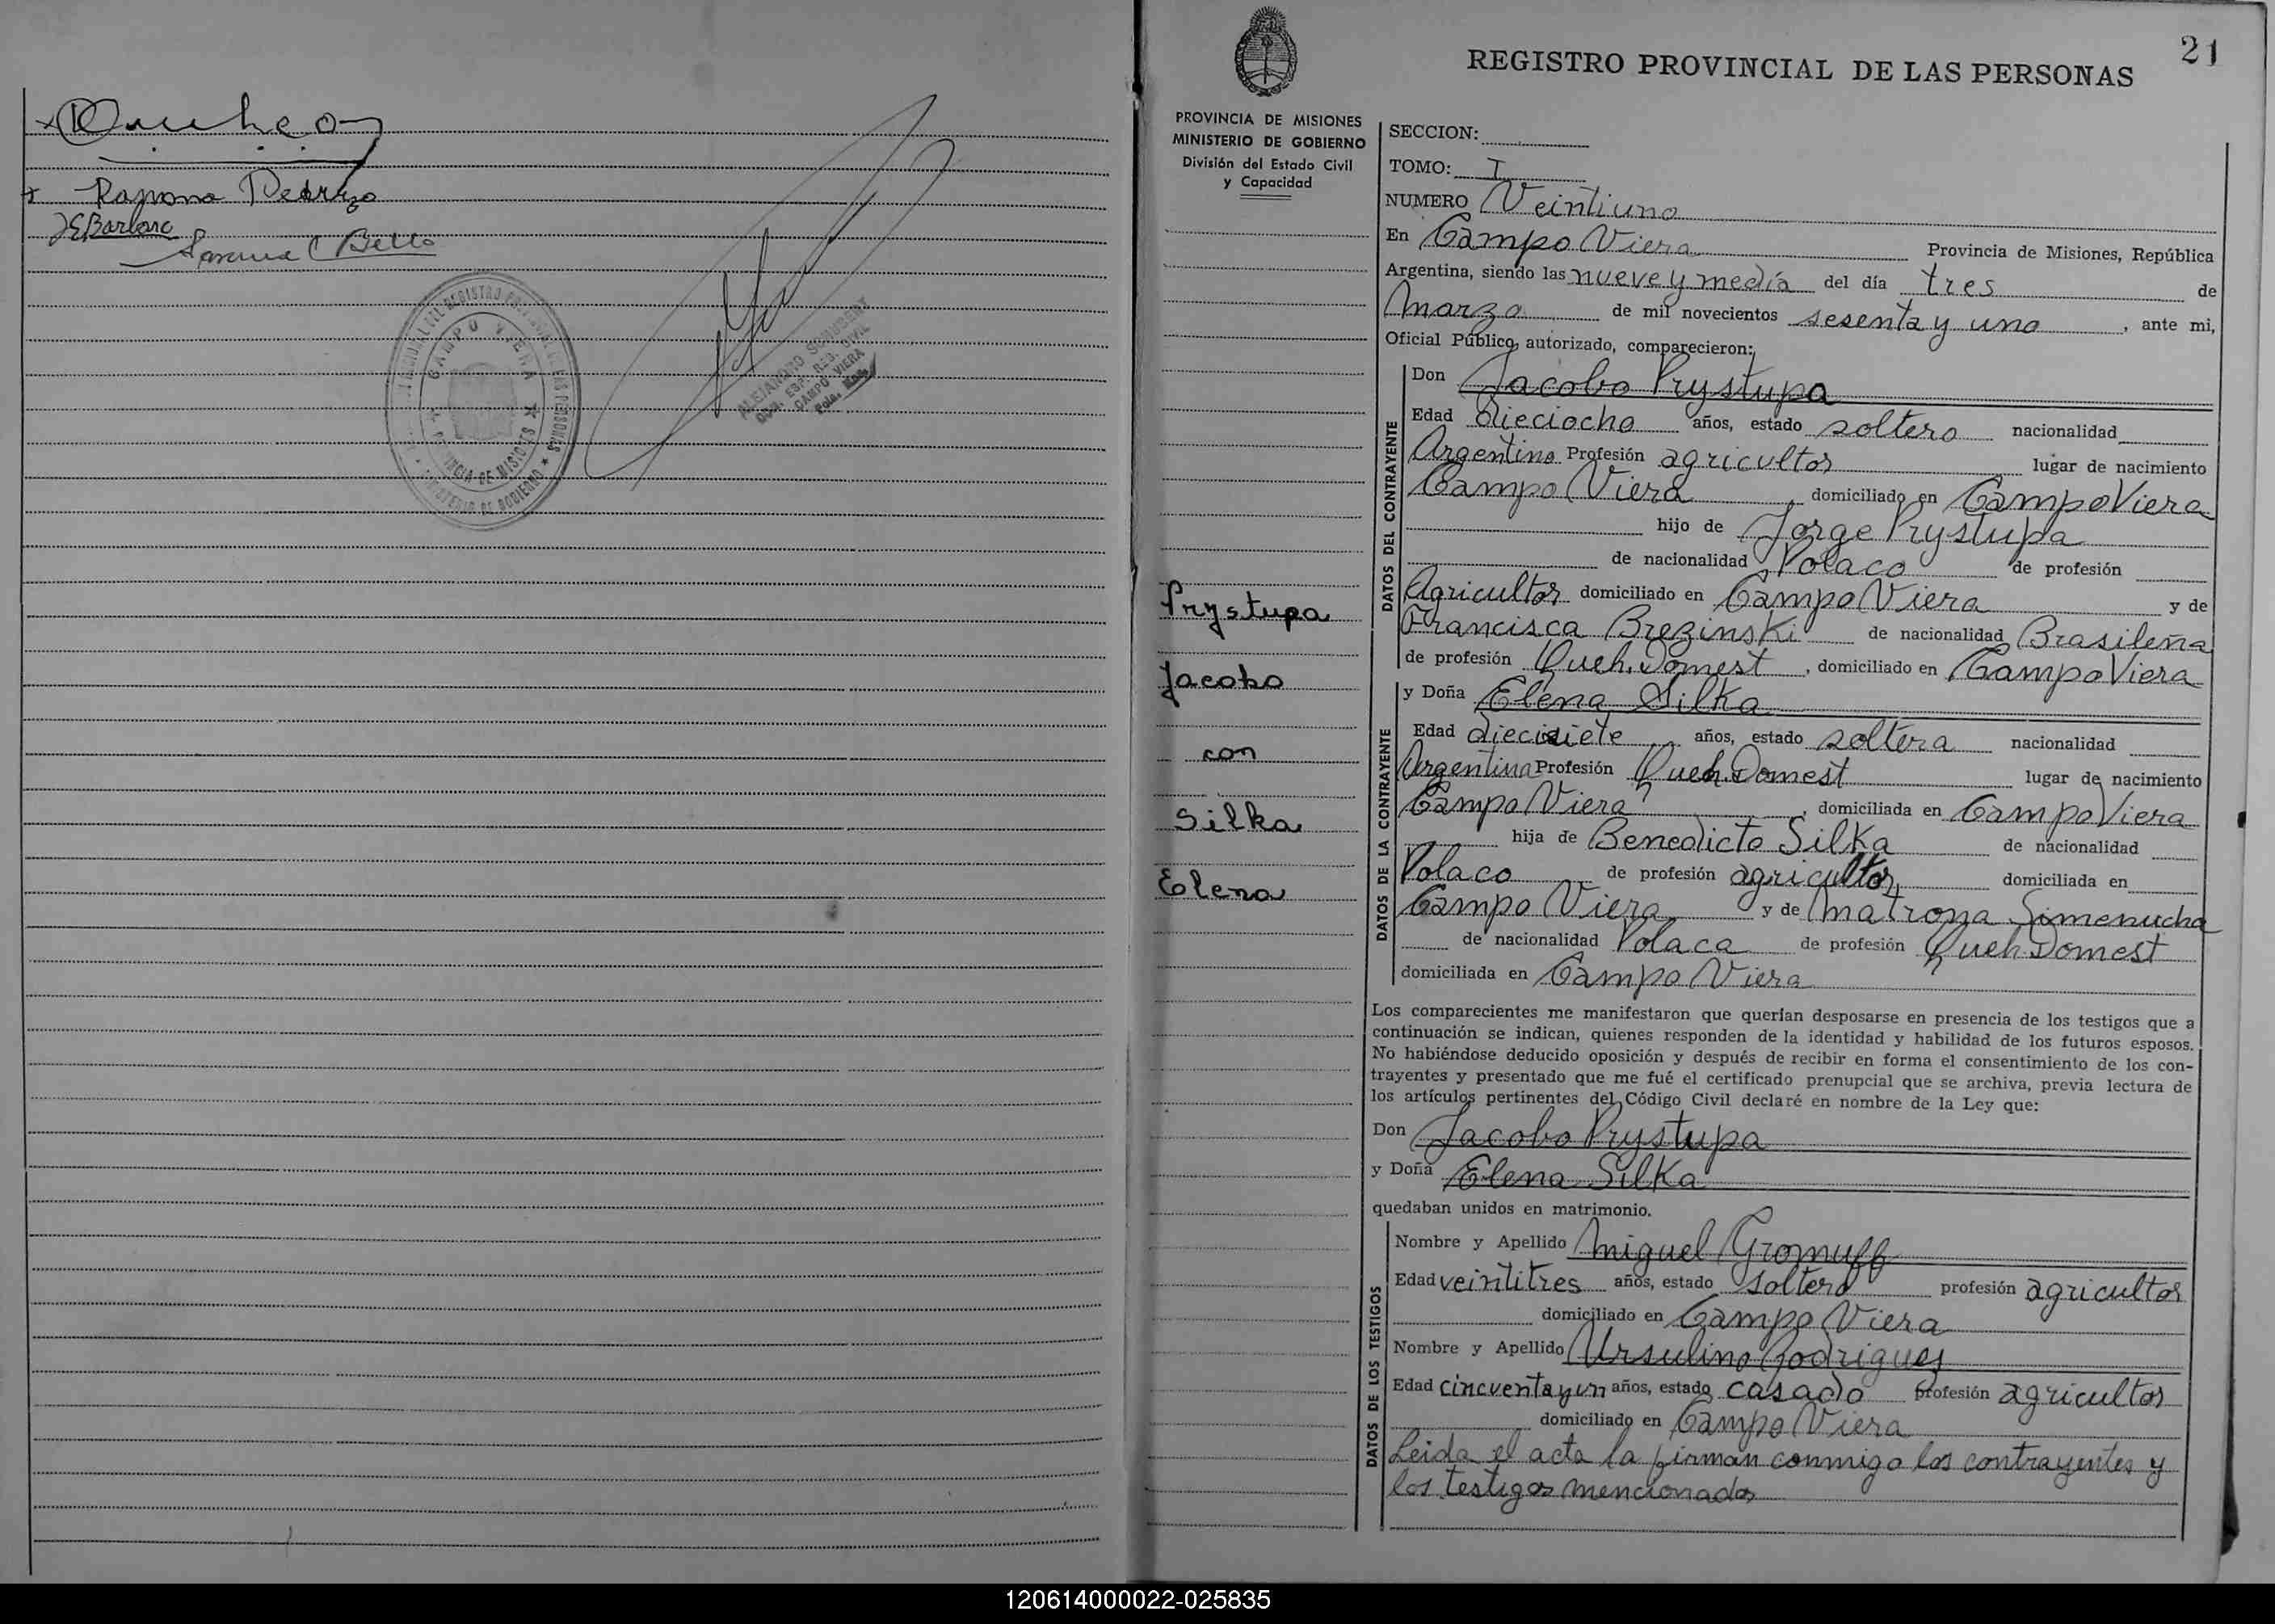 Ramona
JEBarbaro
CAMPO VIERA
PROVINCIA DE MISIONES
ALEJANDRO SCHUBERT
CAMPO VIERA
21
REGISTRO PROVINCIAL DE LAS PERSONAS
PROVINCIA DE MISIONES
MINISTERIO DE GOBIERNO
División del Estado Civil
y Capacidad
SECCION:
TOMO: I
NUMERO Veintiuno
En Campo Viera Provincia de Misiones, República
Argentina, siendo las nueve y media del día tres de
Marzo de mil novecientos sesenta y uno, ante mi,
Oficial Público, autorizado, comparecieron:
DATOS DEL CONTRAYENTE
Don Jacobo Prystupa
Edad dieciocho años, estado soltero nacionalidad
Argentino Profesión agricultor lugar de nacimiento
Campo Viera, domiciliado en Campo Viera
hijo de Jorge Prystupa
de nacionalidad Polaco de profesión
Agricultor domiciliado en Campo Viera y de
Francisca Brezinski de nacionalidad Brasileña
de profesión Queh. Domest, domiciliado en Campo Viera
DATOS DE LA CONTRAYENTE
y Doña Elena Silka
Edad diecisiete años, estado soltera nacionalidad
Argentina Profesión Queh. Domest lugar de nacimiento
Campo Viera, domiciliada en Campo Viera
hija de Benedicto Silka de nacionalidad
Polaco de profesión agricultor domiciliada en
Campo Viera y de Matrona Simenucha
de nacionalidad Polaca de profesión Queh Domest
domiciliada en Campo Viera
Prystupa
Jacobo
con
Silka
Elena
Los comparecientes me manifestaron que querían desposarse en presencia de los testigos que a
continuación se indican, quienes responden de la identidad y habilidad de los futuros esposos.
No habiéndose deducido oposición y después de recibir en forma el consentimiento de los con-
trayentes y presentado que me fué el certificado prenupcial que se archiva, previa lectura de
los artículos pertinentes del Código Civil declaré en nombre de la Ley que:
Don Jacobo Prystupa
y Doña Elena Silka
quedaban unidos en matrimonio.
DATOS DE LOS TESTIGOS
Nombre y Apellido Miguel Gromuff
Edad veintitres años, estado soltero profesión agricultor
domiciliado en Campo Viera
Nombre y Apellido Ursulino Rodrigues
Edad cincuentayun años, estado casado profesión agricultor
domiciliado en Campo Viera
Leida el acta la firman conmigo los contrayentes y
los testigos mencionados
120614000022-025835